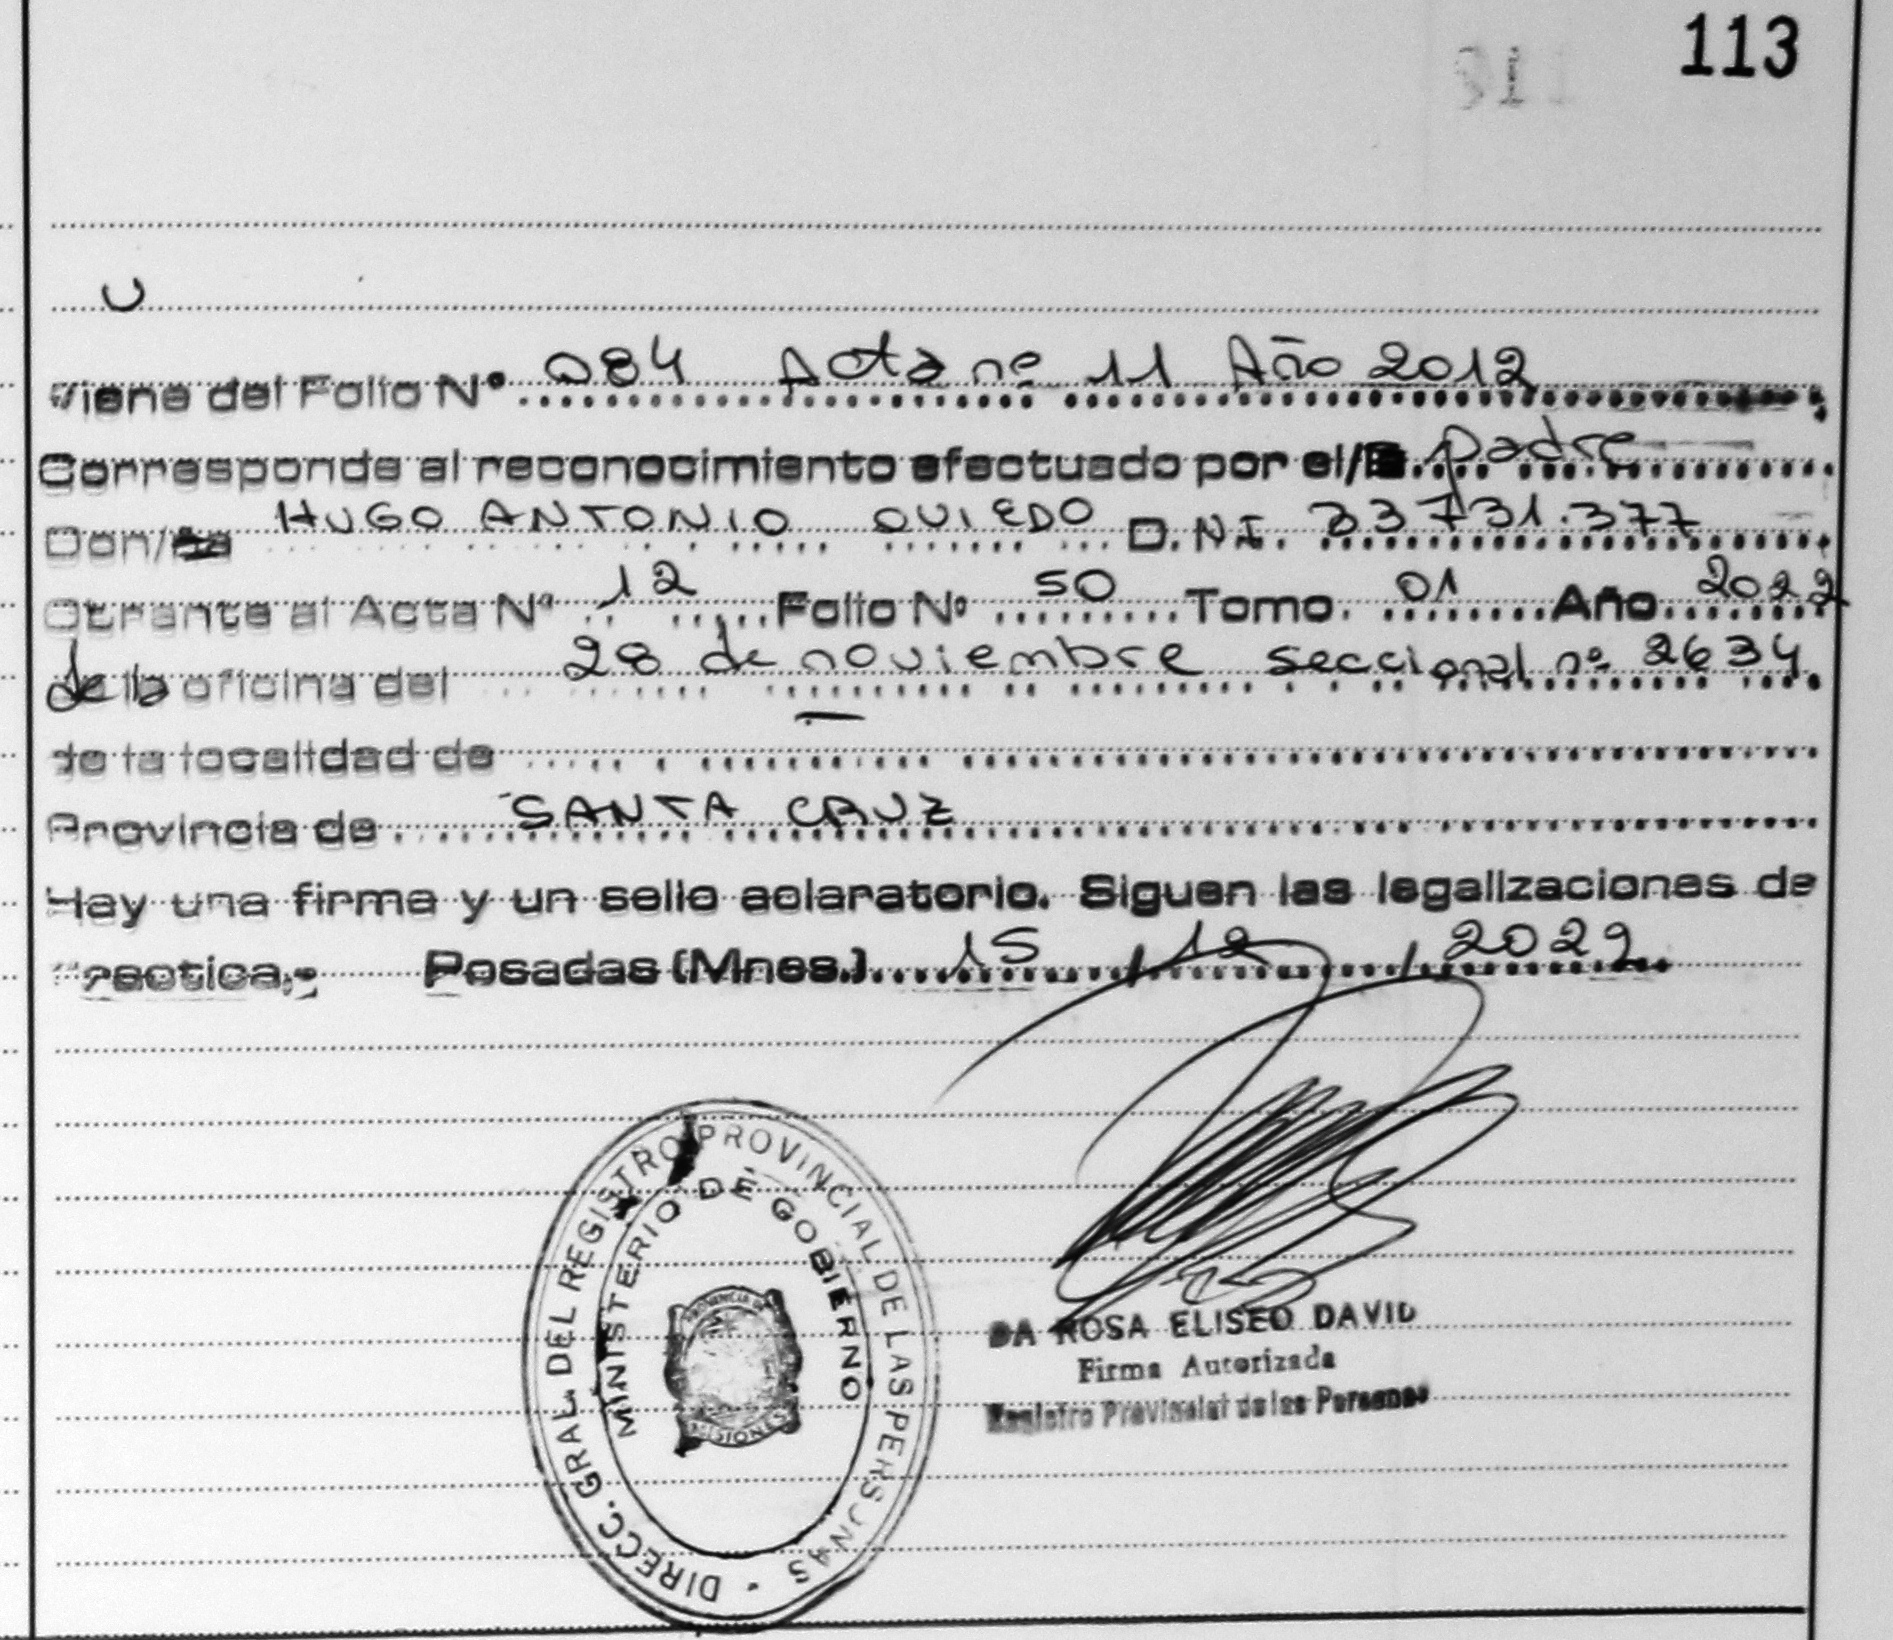 113
Viene del Folio Nº 084 Acta nº 11 Año 2012
Corresponde al reconocimiento efectuado por el/ padre
Don/ HUGO ANTONIO OVIEDO D.N.I. 33731.377
Obrante al Acta Nº 12 Folio Nº 50 Tomo. 01 Año. 2022
de la oficina del 28 de noviembre seccional nº 2634
de la localidad de —
Provincia de SANTA CRUZ
Hay una firma y un sello aclaratorio. Siguen las legalizaciones de
practica.- Posadas (Mnes.) 15 / 12 / 2022
DIRECC. GRAL. DEL REGISTRO PROVINCIAL DE LAS PERSONAS
MINISTERIO DE GOBIERNO
PROVINCIA DE
MISIONES
DA ROSA ELISEO DAVID
Firma Autorizada
Registro Provincial de las Personas